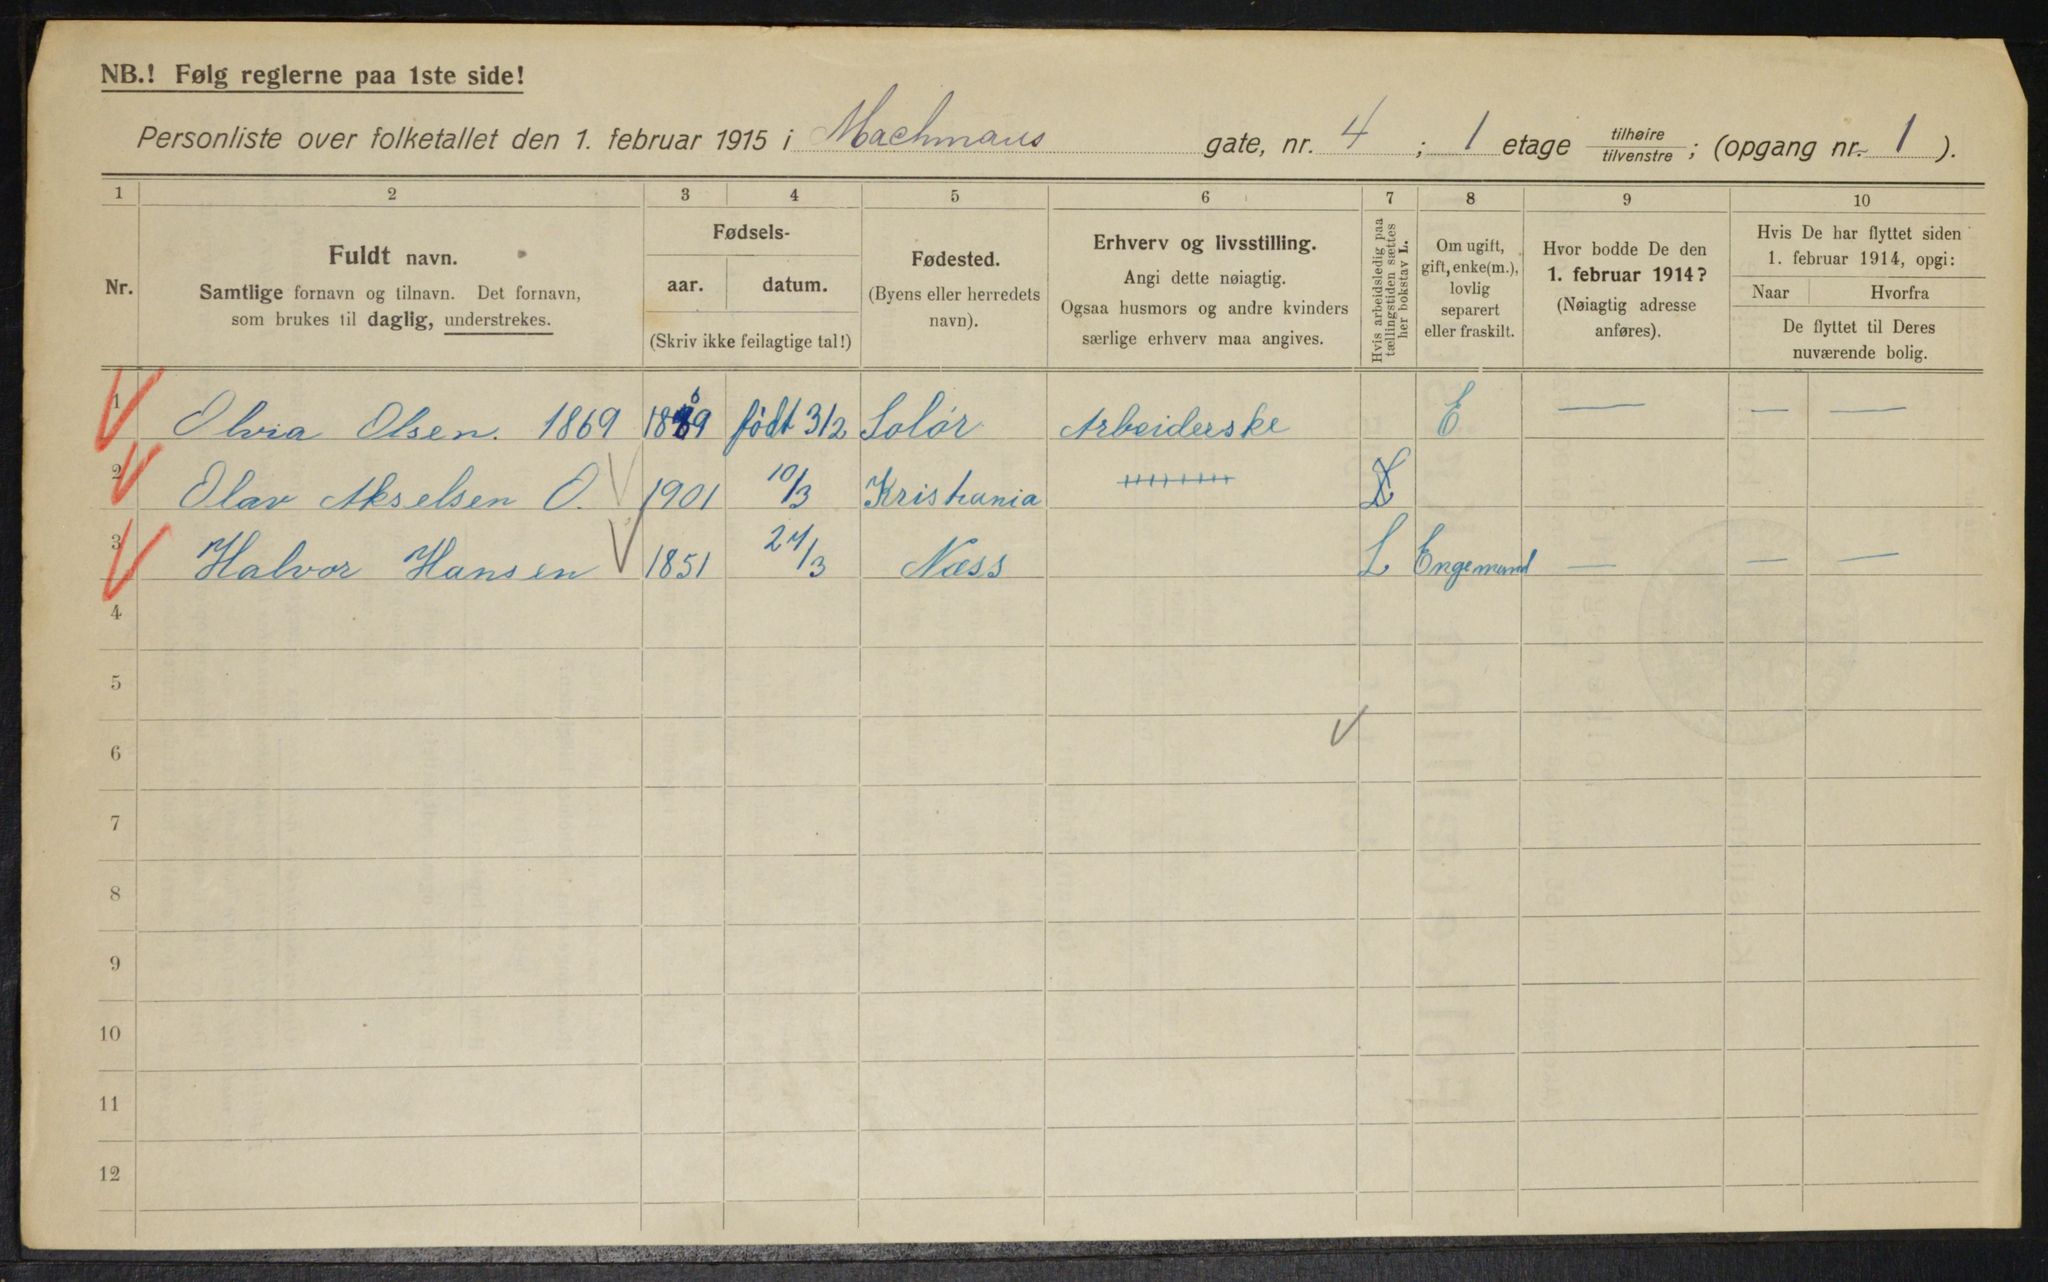 NB.! Følg reglerne paa 1ste side!
Personliste over folketallet den 1. februar 1915 i Machmans gate, nr. 4 ; 1 etage tilhøire tilvenstre ; (opgang nr. 1 ).
1 2 3 4 5 6 7 8 9 10
Nr.
Fuldt navn.
Samtlige fornavn og tilnavn. Det fornavn,
som brukes til daglig, understrekes.
Fødsels-
aar. datum.
(Skriv ikke feilagtige tal!)
Fødested.
(Byens eller herredets
navn).
Erhverv og livsstilling.
Angi dette nøiagtig.
Ogsaa husmors og andre kvinders
særlige erhverv maa angives.
Hvis arbeidsledig paa
tællingstiden sættes
her bokstav L.
Om ugift,
gift, enke(m.),
lovlig
separert
eller fraskilt.
Hvor bodde De den
1. februar 1914?
(Nøiagtig adresse
anføres).
Hvis De har flyttet siden
1. februar 1914, opgi:
Naar Hvorfra
De flyttet til Deres
nuværende bolig.
1 Olvia Olsen. 1869 1869 født 3/2 Solør Arbeiderske E — — —
2 Olav Akselsen O. 1901 10/3 Kristiania L
3 Halvor Hansen 1851 24/3 Næss L Engemand — — —
4
5
6
7
8
9
10
11
12